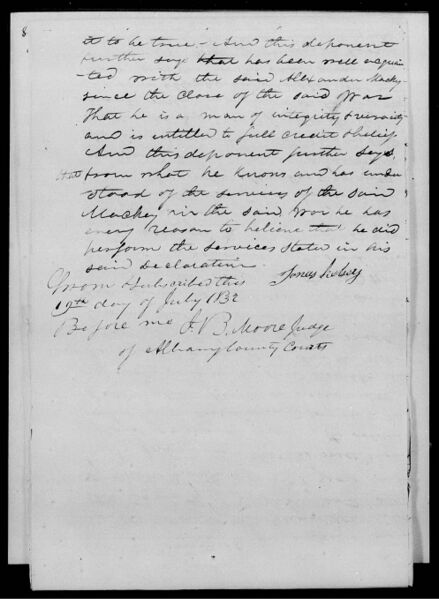 8
it to be true - And this deponent
further says that has been well acquain
ted with the said Alexander Mackey
since the close of the said War
That he is a man of integrity & veracity
and is entitled to full credit & belief
And this deponent further says
that from what he knows and has under
stood of the services of the said
Mackey in the said War he has
every reason to believe that he did
perform the services stated in his
said declaration
Sworn & subscribed this
19th day of July 1832
Before me J. B. Moore Judge
of Albany County Courts